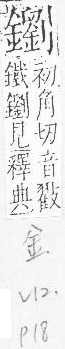 初角切音
鐵 見釋典
金
V12.
P18